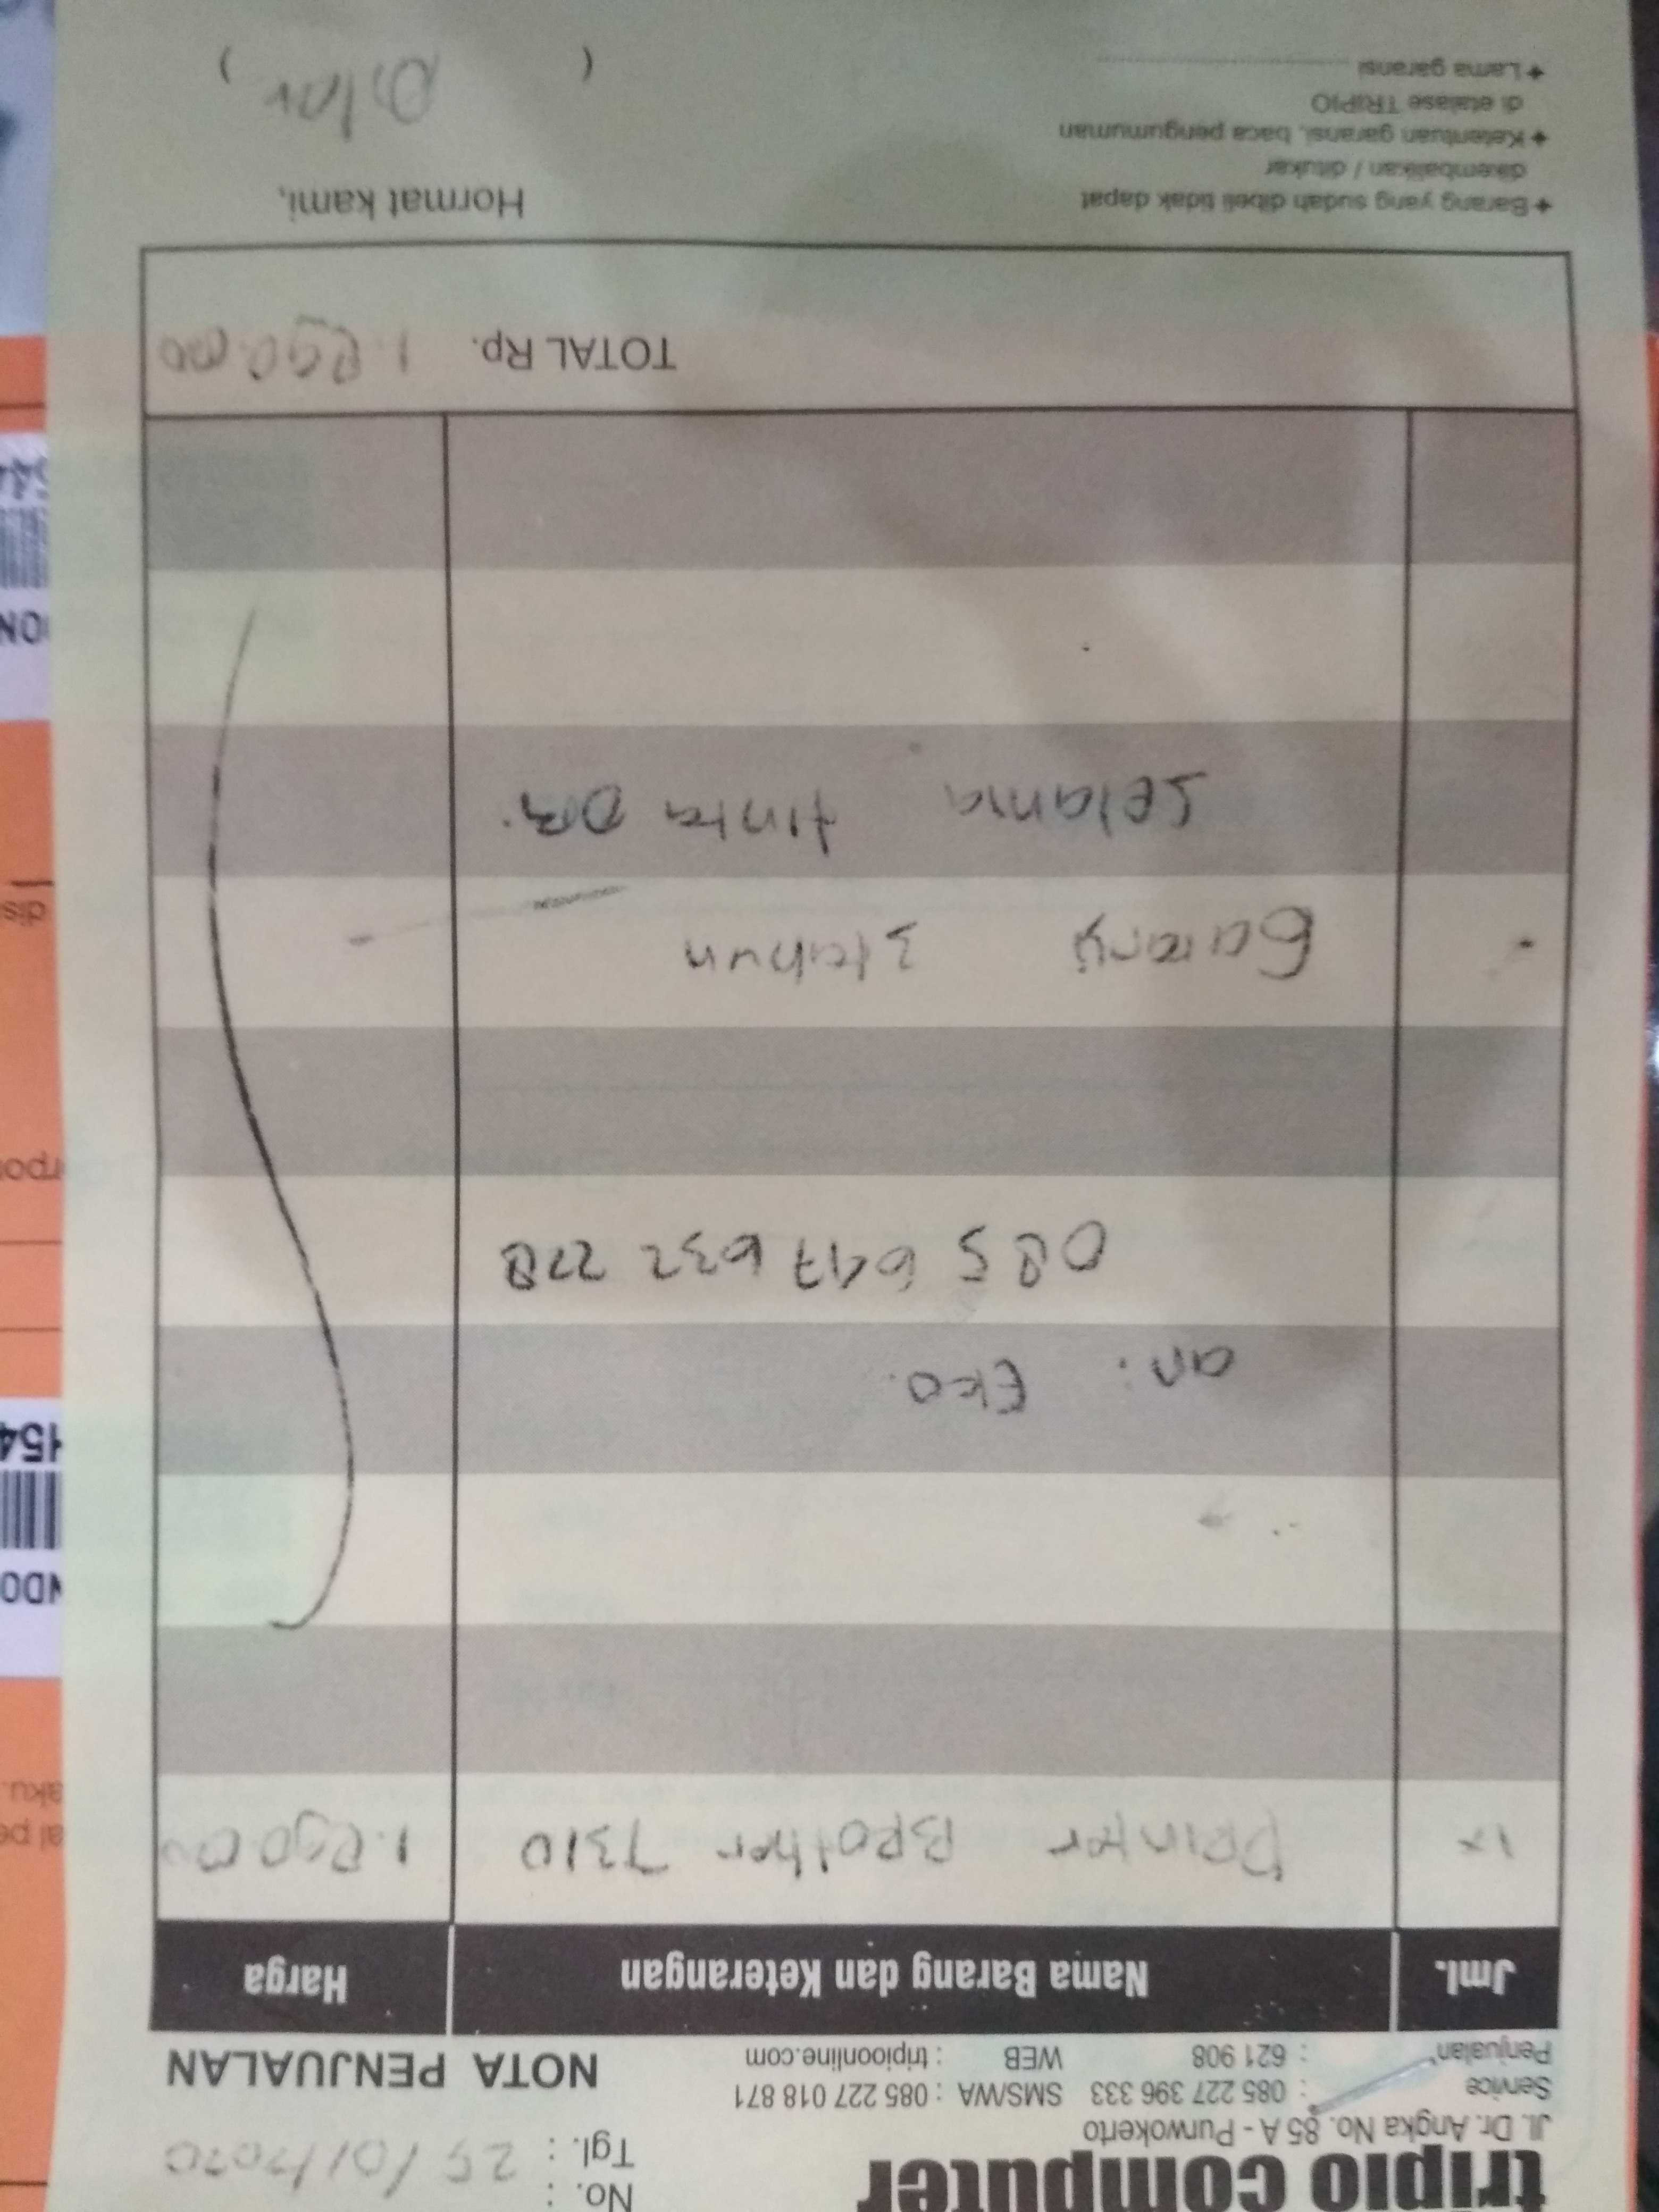 tripio computer
Jl. Dr. Angka No. 85 A - Purwokerto
Service : 085 227 396 333 SMS/WA : 085 227 018 871
Penjualan : 621 908 WEB : tripioonline.com
No. :
Tgl. : 25/01/2020
NOTA PENJUALAN
Jml. Nama Barang dan Keterangan Harga
1x Printer Brother T310 1.890.000
an: Eko.
085 647 632 228
3 tahun
selama tinta
TOTAL Rp. 1.890.000
✦ Barang yang sudah dibeli tidak dapat
dikembalikan / ditukar
✦ Ketentuan garansi, baca pengumuman
di etalase TRIPIO
✦ Lama garansi
Hormat kami,
( )